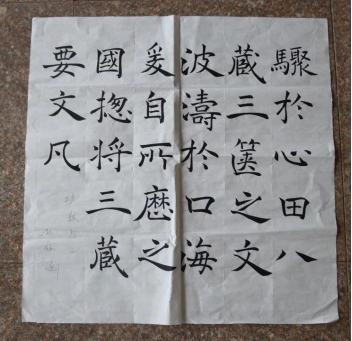 驟於心田八
藏三篋之文
波濤於口海
爰自所歷之
國揔将三藏
要文凡